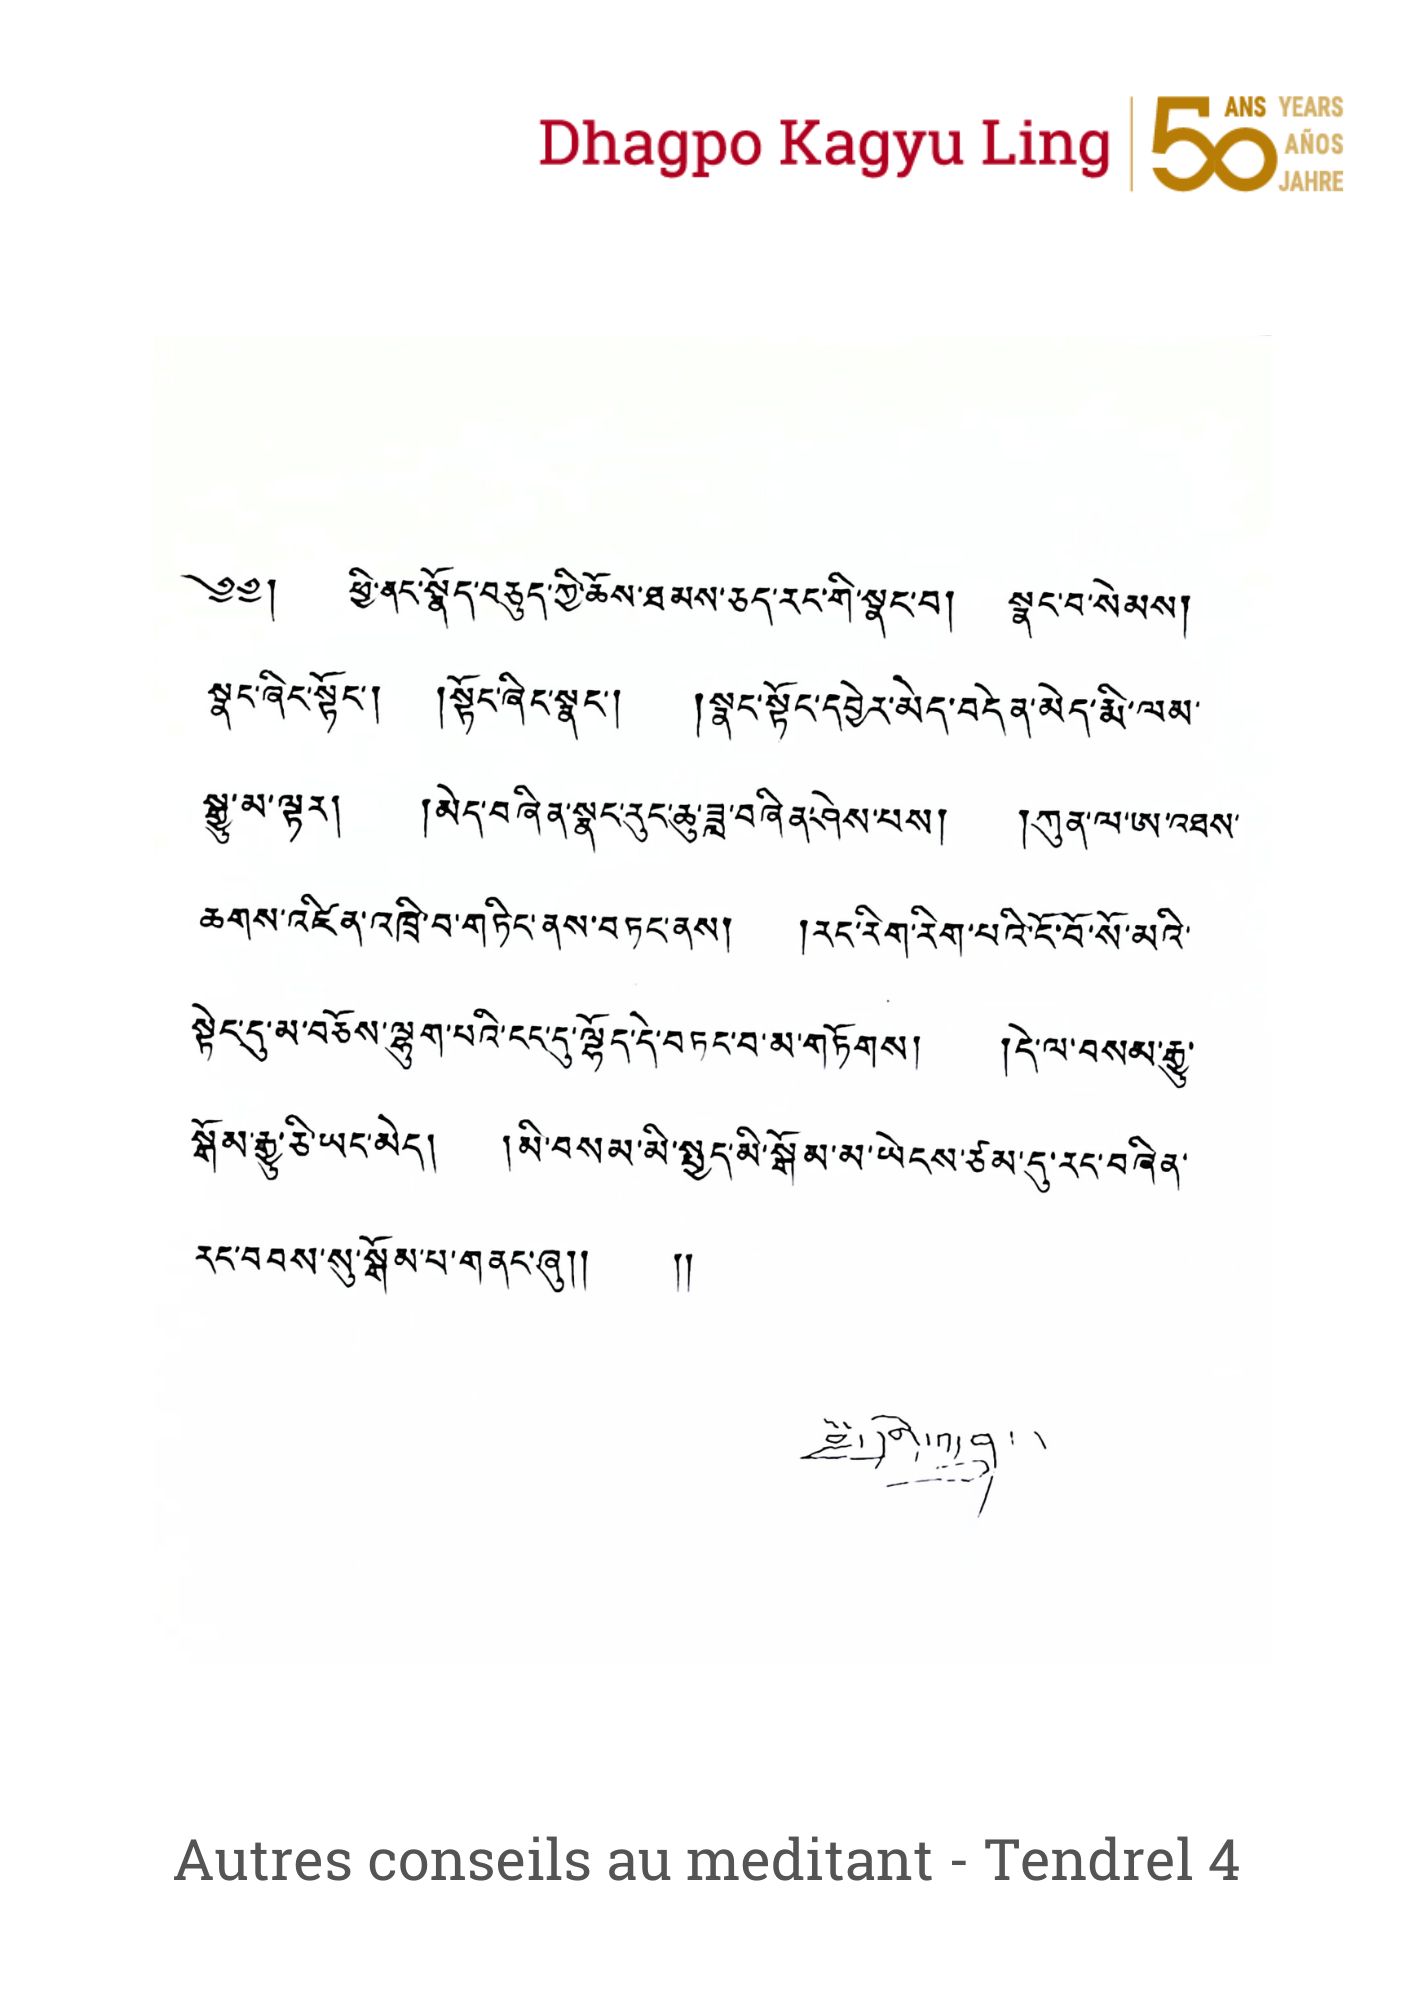 Dhagpo Kagyu Ling
50 ANS YEARS
AÑOS
JAHRE
༄༅། ཕྱི་ནང་སྣོད་བཅུད་ཀྱི་ཆོས་ཐམས་ཅད་རང་གི་སྣང་བ། སྣང་བ་སེམས།
སྣང་ཞིང་སྟོང་། །སྟོང་ཞིང་སྣང་། །སྣང་སྟོང་དབྱེར་མེད་བདེན་མེད་རྨི་ལམ་
སྒྱུ་མ་ལྟར། །མེད་བཞིན་སྣང་རུང་ཆུ་ཟླ་བཞིན་ཤེས་པས། །ཀུན་ལ་ཨ་འཐས་
ཆགས་འཛིན་འཁྲི་བ་གཏིང་ནས་བཏང་ནས། །རང་རིག་རིག་པའི་ངོ་བོ་སོ་མའི་
སྟེང་དུ་མ་བཅོས་ལྷུག་པའི་ངང་དུ་ལྷོད་དེ་བཏང་བ་མ་གཏོགས། །དེ་ལ་བསམ་རྒྱུ་
སྒོམ་རྒྱུ་ཅི་ཡང་མེད། །མི་བསམ་མི་སྤྱད་མི་སྒོམ་མ་ཡེངས་ཙམ་དུ་རང་བཞིན་
རང་བབས་སུ་སྒོམ་པ་གནང་ཞུ།། །།
Autres conseils au meditant - Tendrel 4